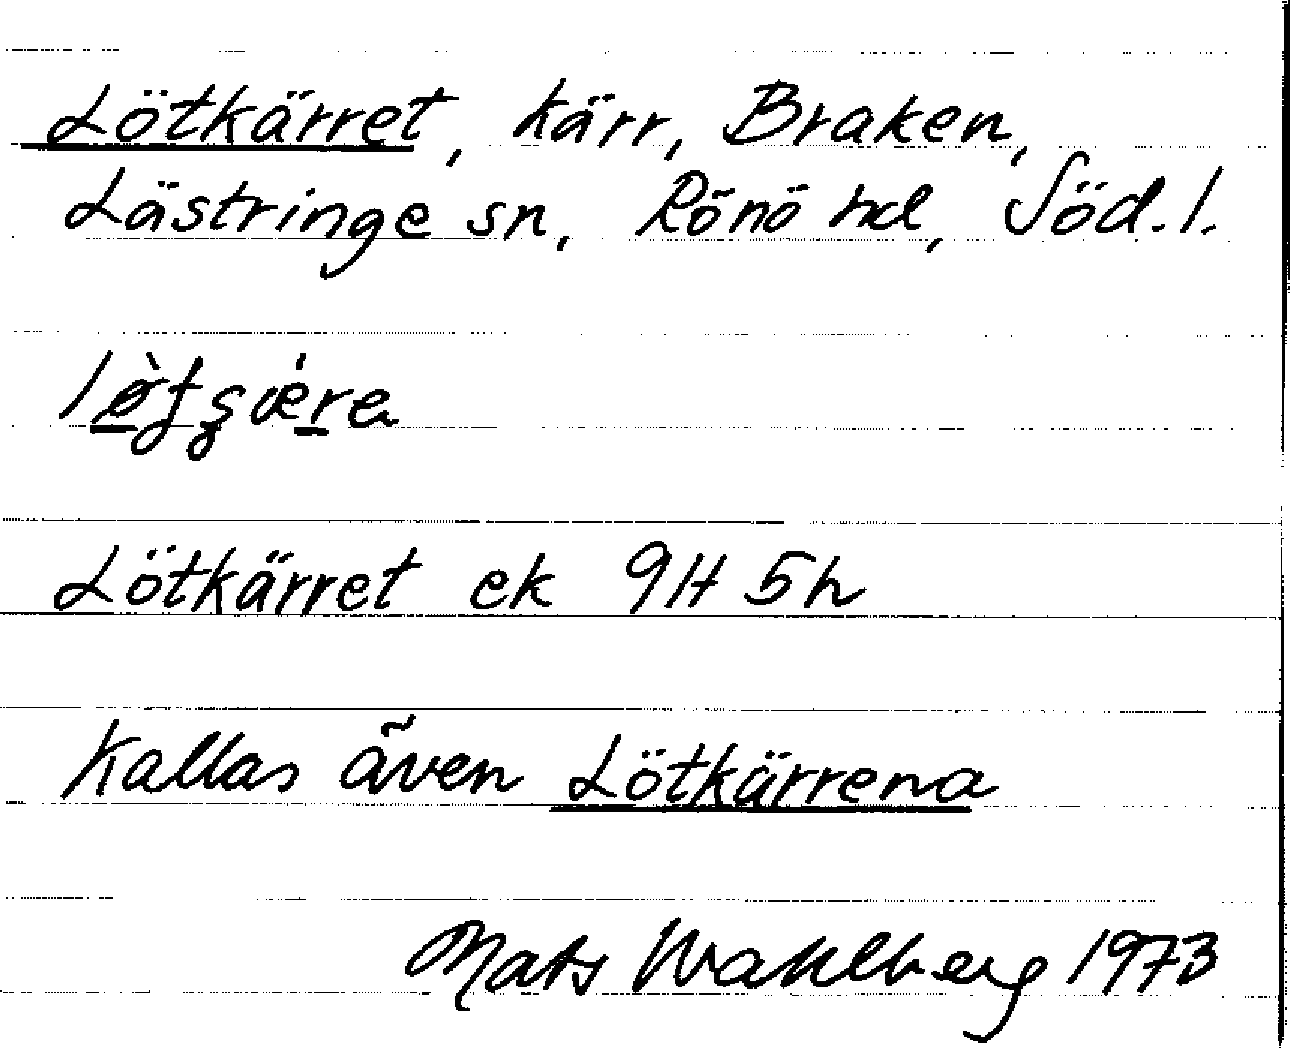 Lötkärret, kärr, Braken,
Lästringe sn, Rönö hd, Söd. l.
Lötkärret ek 9H 5h
Kallas även Lötkärrena
Mats Wahlberg 1973